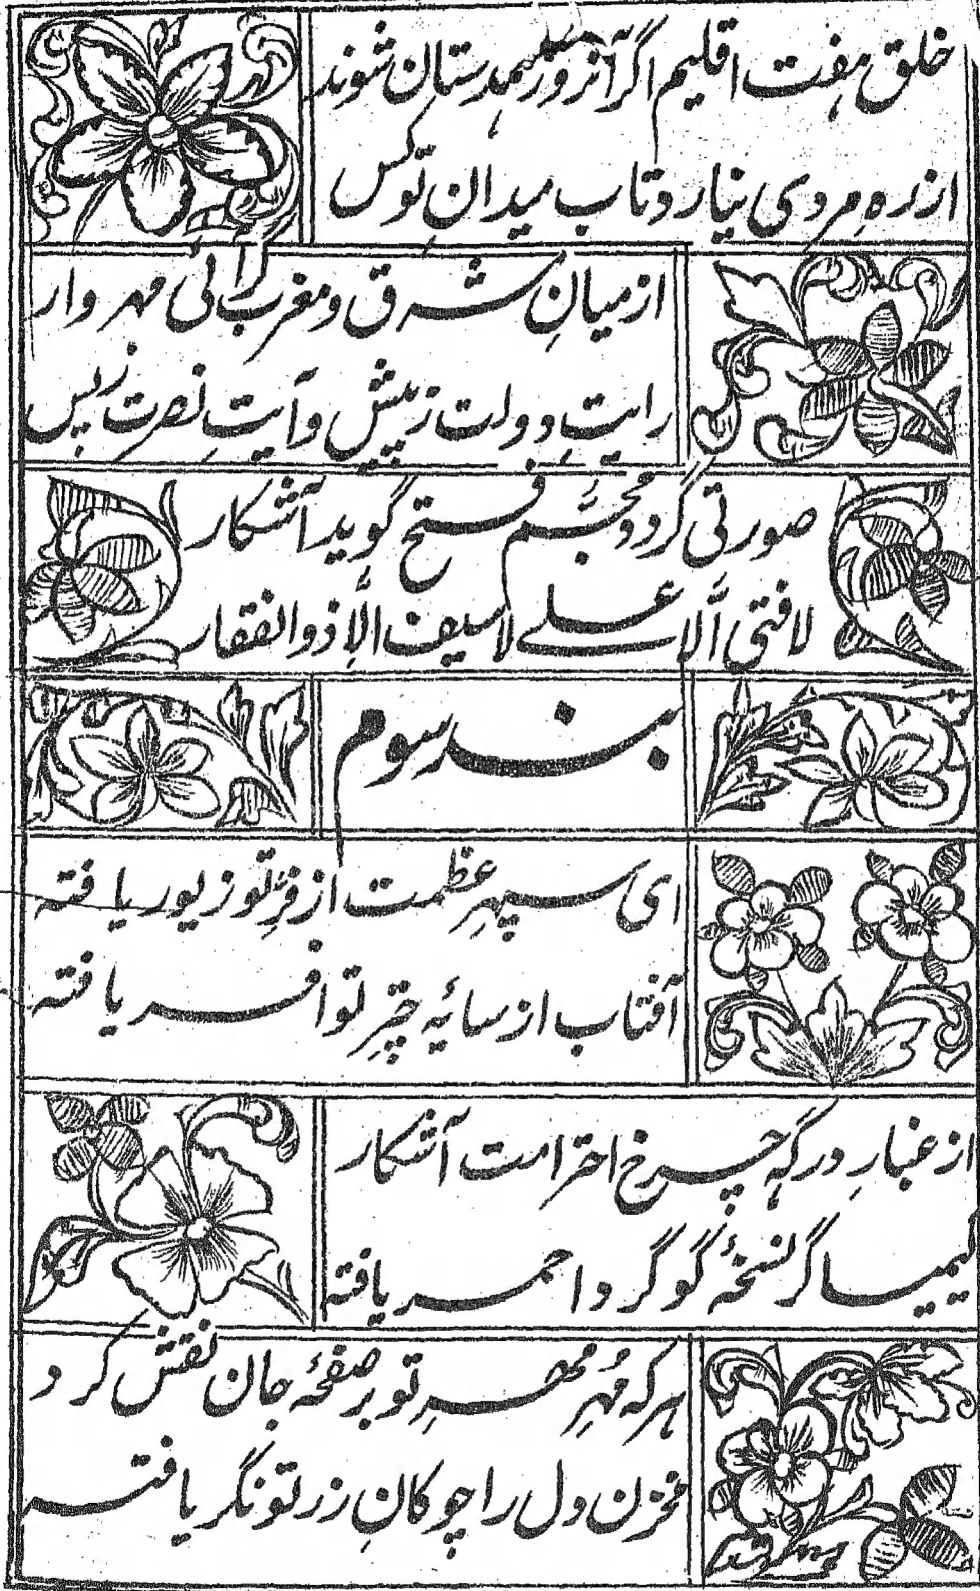 خلق هفت اقلیم اگر آنروز همدستان شوند
از ره مردی نیارد تاب میدانِ تو کس
از میانِ شرق و مغرب آئی مهر وار
رایتِ دولت ز پیش و آیتِ نصرت ز پس
صورتی گردد مجسّم فتح گوید آشکار
لافتی اِلّا علے لاسیف اِلّا ذوالفقار
بند سوم
ای سپهرِ عظمت از فرِّ تو زیور یافته
آفتاب از سائهِ چترِ تو افسر یافته
از غبارِ درگهِ چرخ احترامت آشکار
کیمیاگر نسخهٔ گوگرد احمر یافته
هر که مُهرِ مهرِ تو بر صفحهٔ جان نقش کرد
مخزن دل را چو کانِ زر تونگر یافته